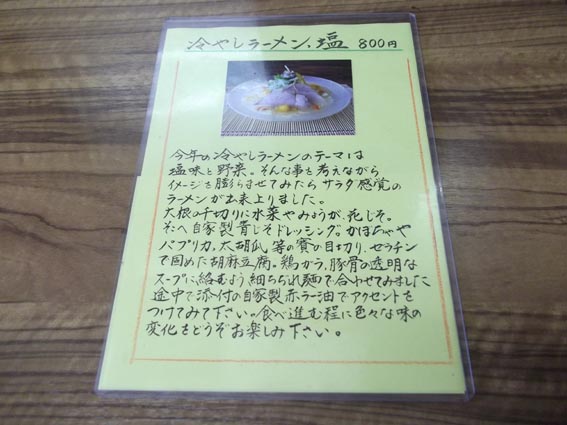 冷やしラーメン、塩 800円
今年の冷やしラーメンのテーマは
塩味と野菜。そんな事を考えながら
イメージを膨らませてみたらサラダ感覚の
ラーメンが出来上りました。
大根の千切りに水菜やみょうが、花じそ。
そこへ自家製青じそドレッシング。かぼちゃや
パプリカ、太胡瓜等の賽の目切り、ゼラチン
で固めた胡麻豆腐。鶏ガラ、豚骨の透明な
スープに絡むよう細ちぢれ麺で合わせてみました
途中で添付の自家製赤ラー油でアクセントを
つけてみて下さい。食べ進む程に色々な味の
変化をどうぞお楽しみ下さい。